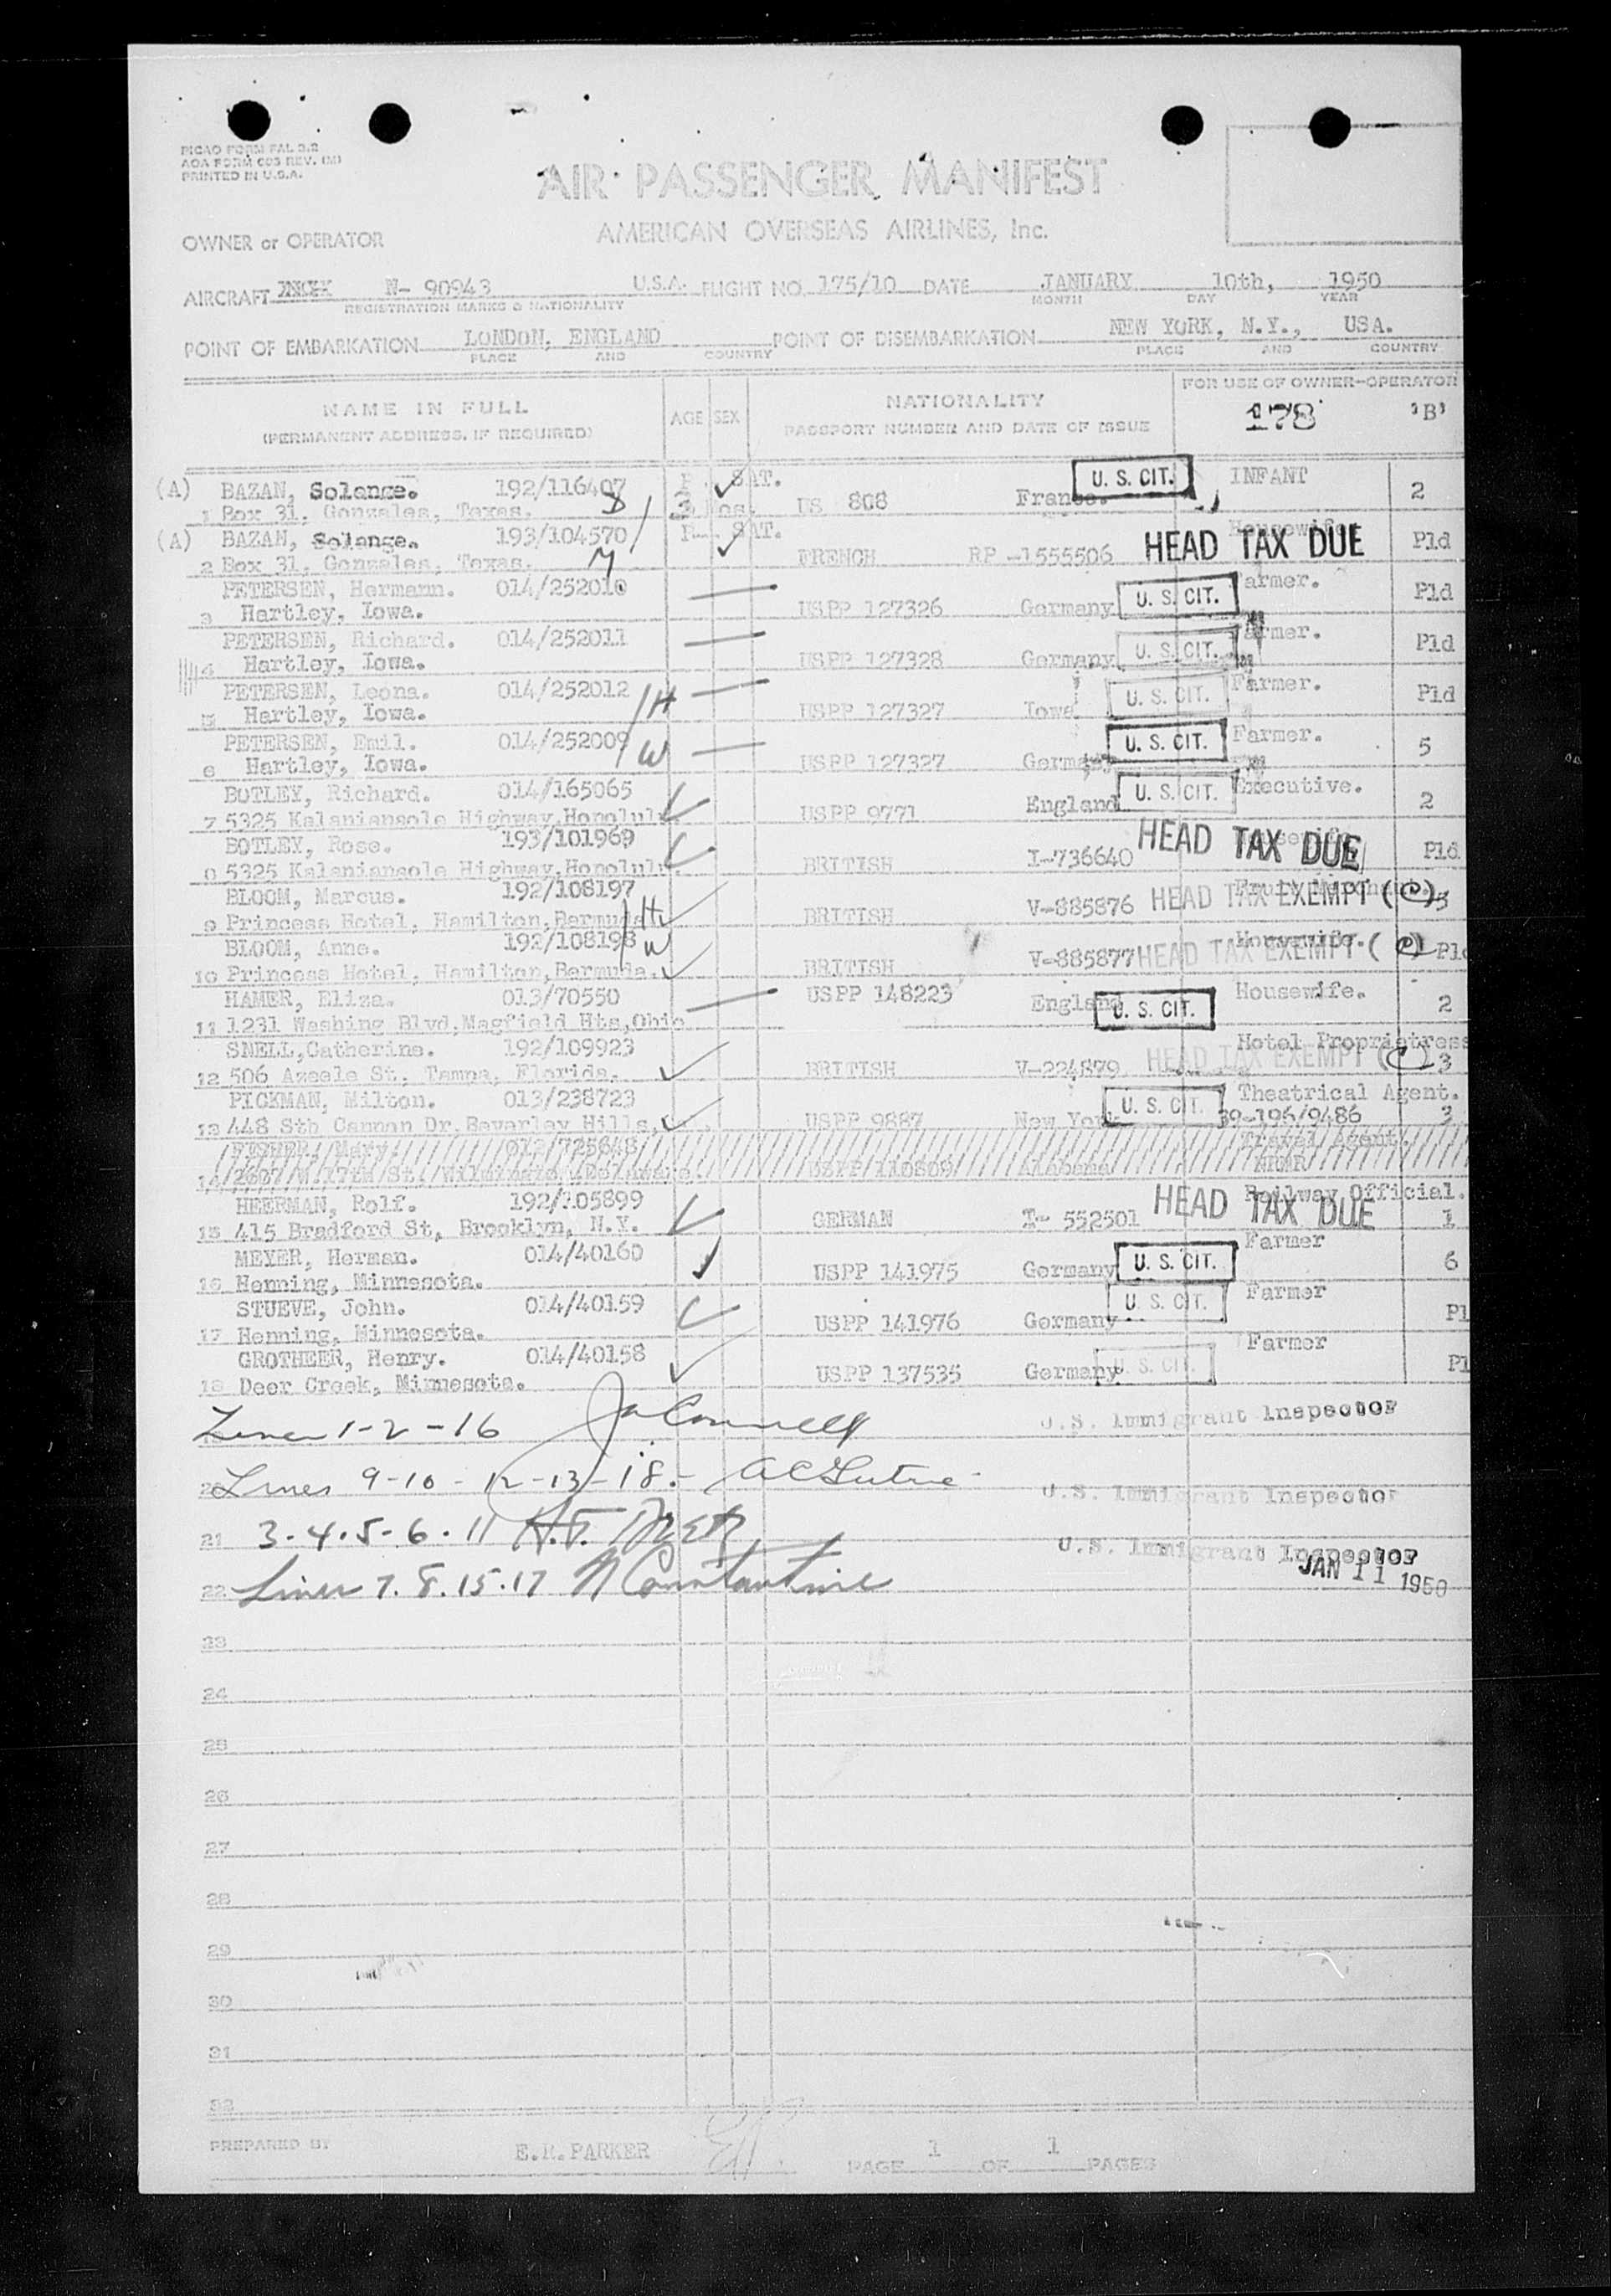 PICAO FORM FAL 3.2
AOA FORM 603 REV. (M)
PRINTED IN U.S.A.
AIR PASSENGER MANIFEST
OWNER or OPERATOR AMERICAN OVERSEAS AIRLINES, Inc.
AIRCRAFT N- 90943 U.S.A. FLIGHT NO. 175/10 DATE JANUARY 10th, 1950
REGISTRATION MARKS & NATIONALITY MONTH DAY YEAR
POINT OF EMBARKATION LONDON, ENGLAND POINT OF DISEMBARKATION NEW YORK, N.Y., USA.
PLACE AND COUNTRY PLACE AND COUNTRY
NAME IN FULL AGE SEX NATIONALITY FOR USE OF OWNER-OPERATOR
(PERMANENT ADDRESS, IF REQUIRED) PASSPORT NUMBER AND DATE OF ISSUE 178 'B'
(A) BAZAN, Solange. 192/116407 SAT. U. S. CIT. INFANT 2
1 Box 31, Gonzales, Texas. US 808 France.
(A) BAZAN, Solange. 193/104570 SAT. HEAD TAX DUE Housewife Pld
2 Box 31, Gonzales, Texas. M FRENCH RP -1555506
PETERSEN, Hermann. 014/252010 U. S. CIT. Farmer. Pld
3 Hartley, Iowa. USPP 127326 Germany
PETERSEN, Richard. 014/252011 U. S. CIT. Farmer. Pld
4 Hartley, Iowa. USPP 127328 Germany
PETERSEN, Leona. 014/252012 H U. S. CIT. Farmer. Pld
5 Hartley, Iowa. USPP 127327 Iowa
PETERSEN, Emil. 014/252009 W U. S. CIT. Farmer. 5
6 Hartley, Iowa. USPP 127327 Germany
BOTLEY, Richard. 014/165065 U. S. CIT. Executive. 2
7 5325 Kalaniansole Highway, Honolulu. USPP 9771 England
BOTLEY, Rose. 193/101969 HEAD TAX DUE Pld
8 5325 Kalaniansole Highway, Honolulu. BRITISH I-736640
BLOOM, Marcus. 192/108197 H HEAD TAX EXEMPT (C) 3
9 Princess Hotel, Hamilton, Bermuda BRITISH V-885876
BLOOM, Anne. 192/108198 W HEAD TAX EXEMPT (C) Housewife. Pld
10 Princess Hotel, Hamilton, Bermuda. BRITISH V-885877
HAMER, Eliza. 013/70550 USPP 148223 England U. S. CIT. Housewife. 2
11 1231 Washing Blvd, Magfield Hts, Ohio
SNELL, Catherine. 192/109923 HEAD TAX EXEMPT (C) Hotel Proprietress 3
12 506 Azeele St. Tampa, Florida. BRITISH V-224879
PICKMAN, Milton. 013/238723 U. S. CIT. Theatrical Agent. 3
13 448 Sth Cannon Dr. Beverley Hills, USPP 9887 New York 39-196/9486
FISHER, Mary. 012/725648 Travel Agent.
14 2607 W. 17th St. Wilmington, Delaware. USPP 110809 Alabama
HEERMAN, Rolf. 192/105899 HEAD TAX DUE Railway Official. 1
15 415 Bradford St, Brooklyn, N.Y. GERMAN T- 552501
MEYER, Herman. 014/40160 U. S. CIT. Farmer 6
16 Henning, Minnesota. USPP 141975 Germany
STUEVE, John. 014/40159 U. S. CIT. Farmer Pl
17 Henning, Minnesota. USPP 141976 Germany
GROTHEER, Henry. 014/40158 U. S. CIT. Farmer Pl
18 Deer Creek, Minnesota. USPP 137535 Germany
Lines 1-2-16 U.S. Immigrant Inspector
20 Lines 9-10-12-13-18.- U.S. Immigrant Inspector
21 3.4.5-6.11 U.S. Immigrant Inspector
JAN 11 1950
22 Lines 7.8.15.17 N Constantine
23
24
25
26
27
28
29
30
31
32
PREPARED BY E.R.PARKER PAGE 1 OF 1 PAGES